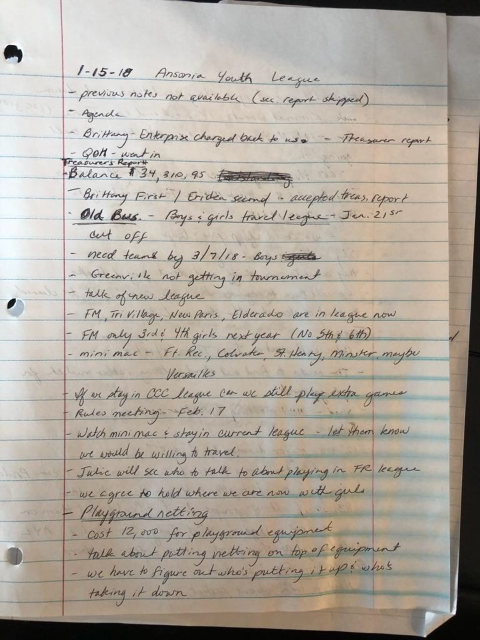 1-15-18 Ansonia Youth League
- previous notes not available (sec. report skipped)
- Agenda
- Brittany - Enterprise charged back to us. - Treasurer report
- QOH - went in
Treasurer's Report
- Balance $34,310.95
- Brittany First / Ericka second - accepted treas. report
- Old Bus. - Boys & girls travel league - Jan. 21st
cut off
- need teams by 3/7/18 - Boys
- Greenville not getting in tournament
- talk of new league
- FM, Tri Village, New Paris, Elderado are in league now
- FM only 3rd & 4th girls next year (No 5th & 6th)
- mini mac - Ft. Rec., Coldwater, St. Henry, Minster maybe
Versailles
- If we stay in CCC league can we still play extra games
- Rules meeting - Feb. 17
- Watch mini mac & stay in current league - let them know
we would be willing to travel
- Julie will see who to talk to about playing in FR league
- we agree to hold where we are now with girls
- Playground netting
- cost 12,000 for playground equipment
- talk about putting netting on top of equipment
- we have to figure out who's putting it up & who's
taking it down